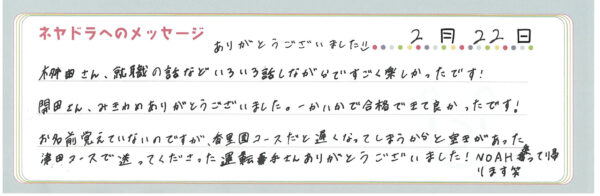 ネヤドラへのメッセージ
ありがとうございました!! 2月22日
桝田さん、就職の話などいろいろ話しながらですごく楽しかったです!
関田さん、みきわめありがとうございました。一かいかで合格できて良かったです!
お名前覚えていないのですが、香里園コースだと遅くなってしまうからと空きがあった
津田コースで送ってくださった運転手さんありがとうございました! NOAH乗って帰
ります笑